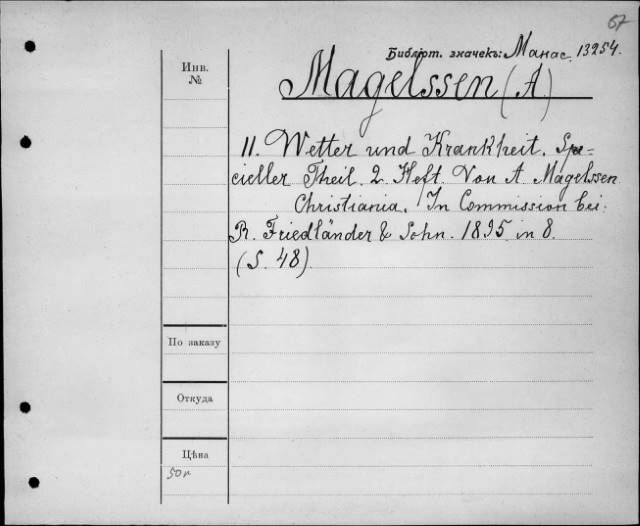 67
Библіот. значекъ: Манас. 13254.
Инв.
№
Magelssen (A)
11. Wetter und Krankheit. Spe=
cieller Theil. 2. Heft. Von A. Magelssen
Christiania. In Commission bei
R. Friedländer & Sohn. 1895 in 8.
(S. 48)
По заказу
Откуда
Цѣна
50к